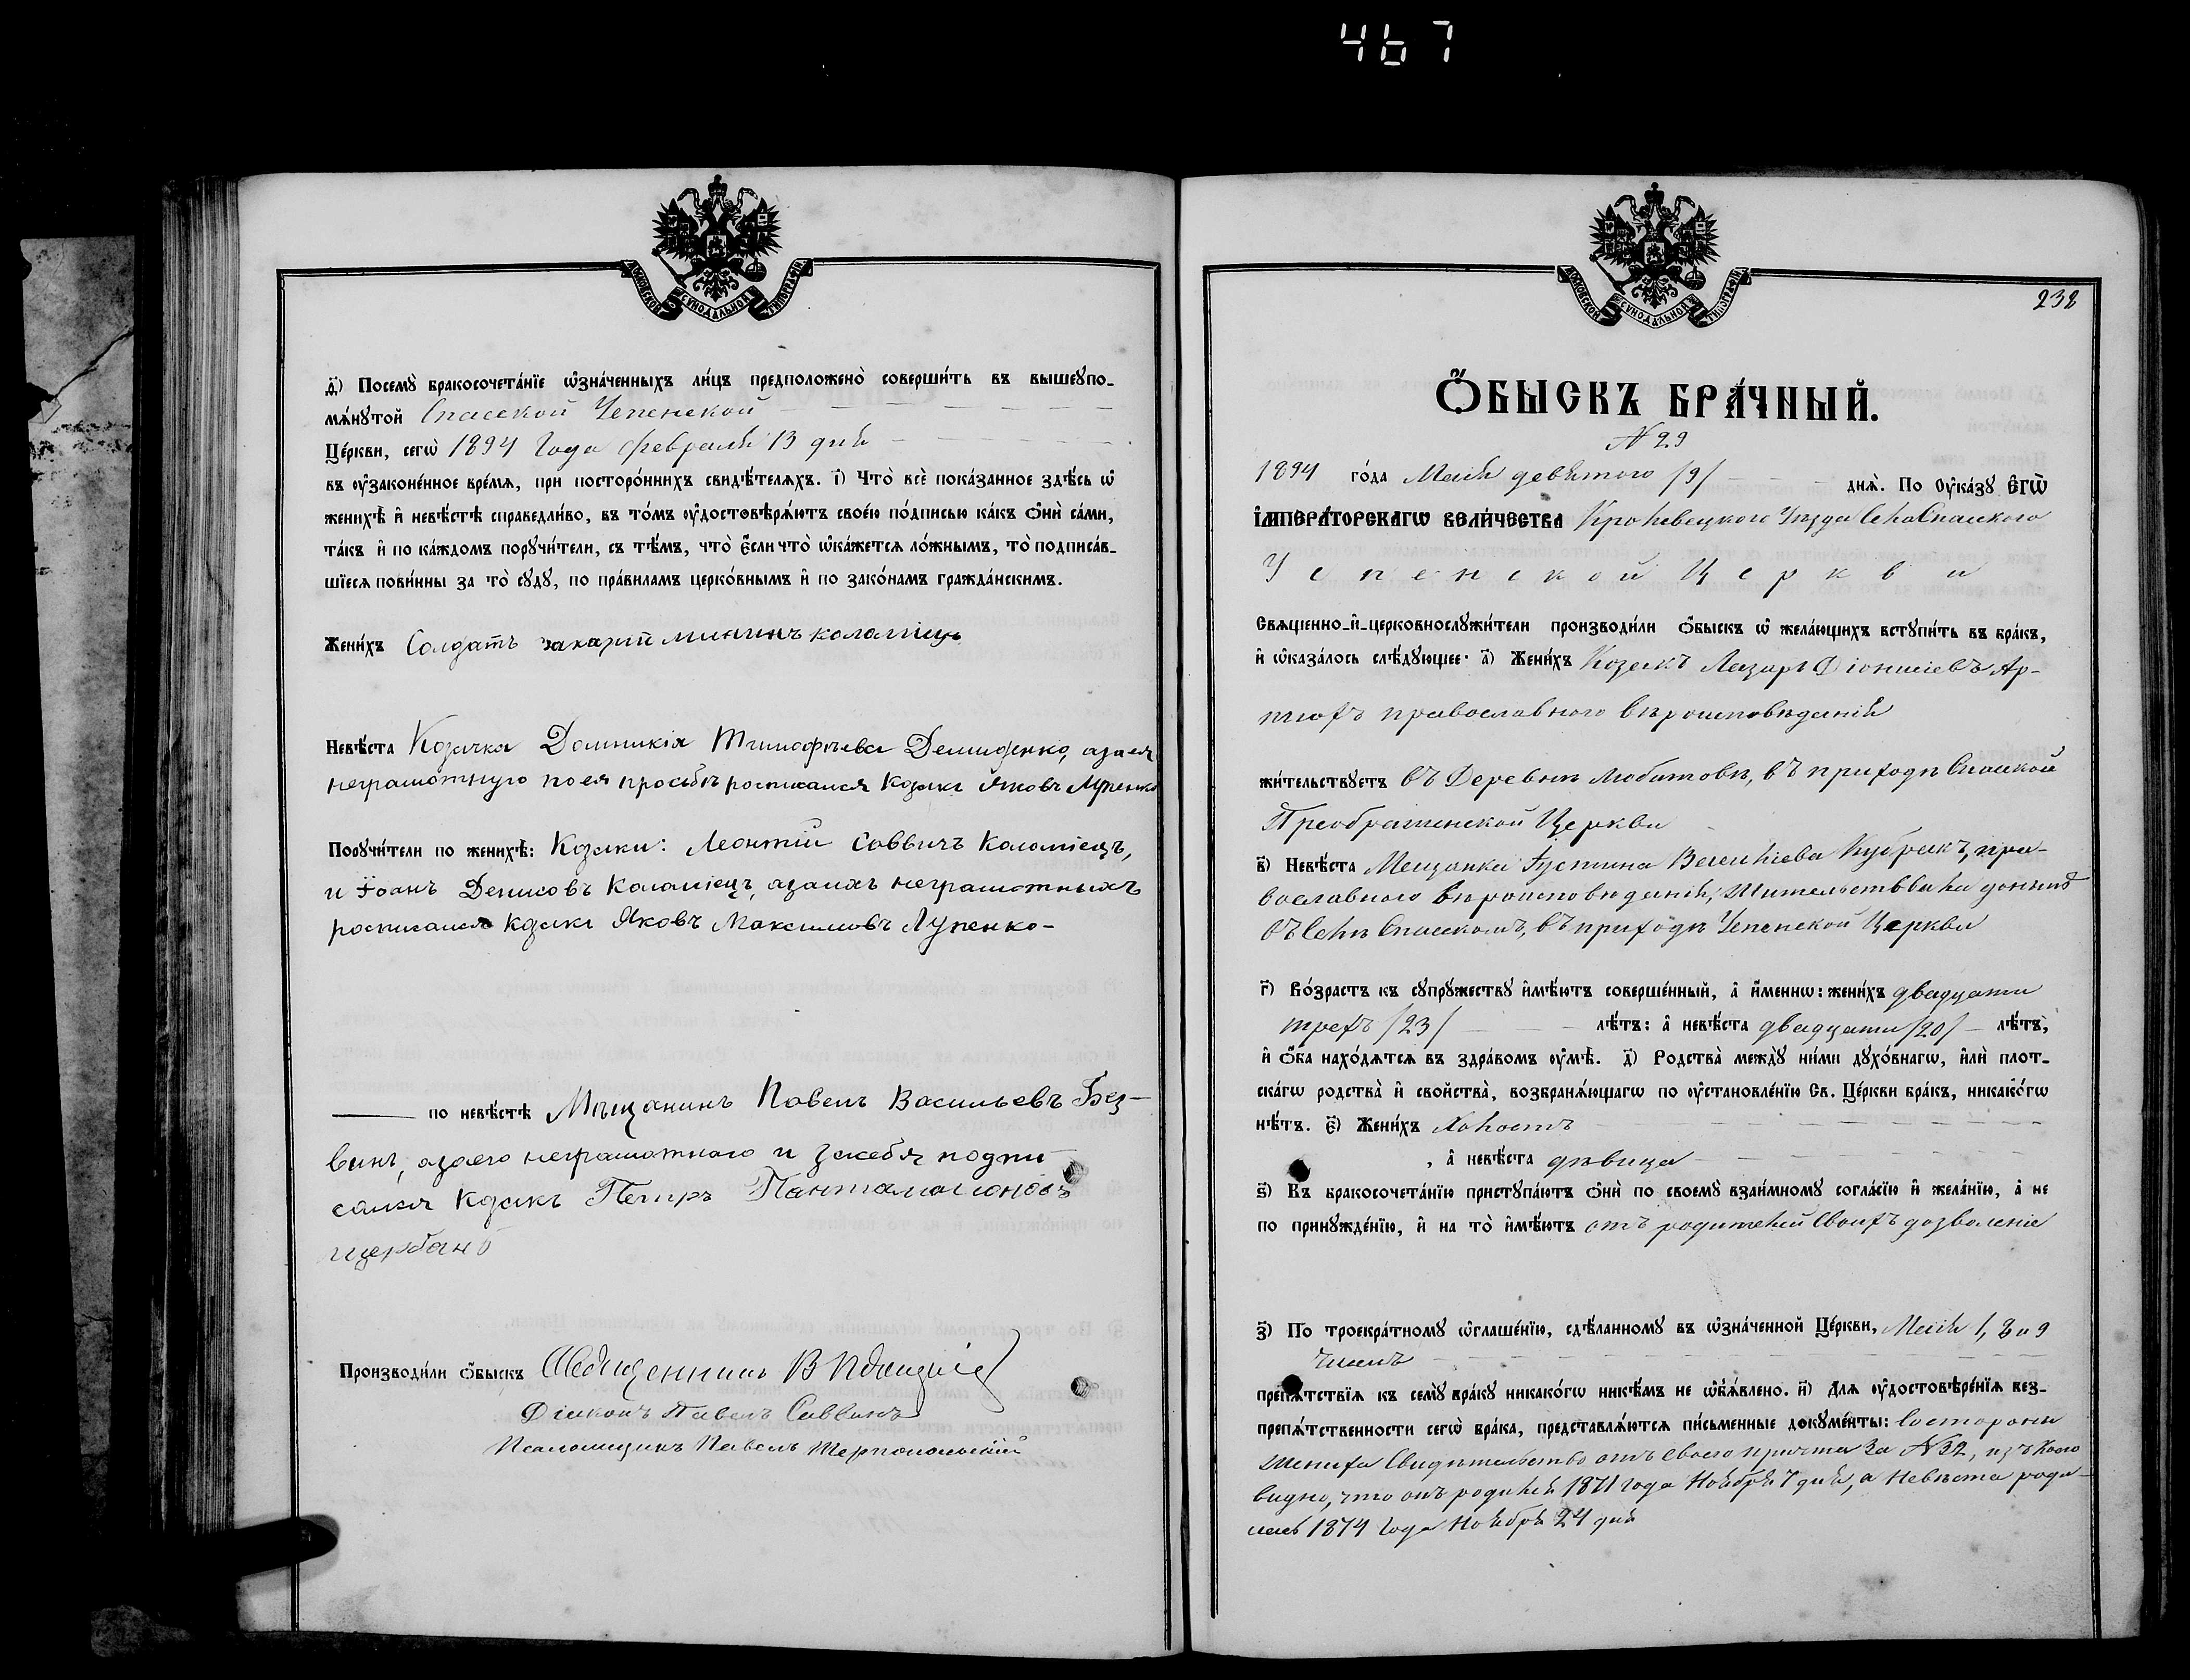 467
МОСКОВСКОЙ СѴНОДАЛЬНОЙ ТИПОГРАФІИ
д҃) Посемꙋ̀ бракосочета́нїе ѡ҆зна́ченныхъ ли́цъ предположено̀ соверши́ть въ вышеꙋпо-
мѧ́нꙋтой Спасской Успенской
Це́ркви, сегѡ̀ 1894 года февраля 13 дня
въ ᲂу҆законе́нное вре́мѧ, при посторо́ннихъ свидѣ́телѧхъ. і҃) Что̀ всѐ пока́занное здѣ́сь ѡ҆
женихѣ̀ и҆ невѣ́стѣ справедли́во, въ то́мъ ᲂу҆достовѣрѧ́ютъ свое́ю по́дписью ка́къ ѻ҆нѝ са́ми,
та́къ и҆ по ка́ждомъ порꙋчи́тели, съ тѣ́мъ, что̀ є҆́сли что̀ ѡ҆ка́жется ло́жнымъ, то̀ подписа́в-
шїесѧ пови́нны за то̀ сꙋдꙋ̀, по пра́виламъ церко́внымъ и҆ по зако́намъ гражда́нскимъ.
Жени́хъ Солдатъ захарій мининъ коломіецъ
Невѣ́ста Козачка Домникія Тимофѣева Демиденко, азаея
неграмотную поея просьбѣ росписался Козакъ Яковъ Лупенко
Порꙋчи́тели по женихѣ̀: Козаки: Леонтій Саввичъ Коломіецъ,
и Іоанъ Денисовъ Коломіецъ, азаихъ неграмотныхъ
росписался Козакъ Яковъ Максимовъ Лупенко-
по невѣ́стѣ Мѣщанинъ Павелъ Васильевъ Без-
винъ, азаего неграмотного и засебя подпи
сался Козакъ Петръ Пантелимоновъ
щербанъ
Производи́ли ѻ҆́быскъ Священникъ В
Діаконъ Павелъ Саввинъ
Псаломщикъ Павелъ Тернопольскій
238
Ѻ҆́БЫСКЪ БРА́ЧНЫЙ.
N 29
1894 го́да Маія девятого /9/ днѧ̀. По ᲂу҆ка́зꙋ Є҆ГѠ̀
І҆МПЕРА́ТОРСКАГѠ ВЕЛИ́ЧЕСТВА Кролевецкого Уѣзда Села Спаского
Успенской Церкви
Свѧще́нно-и҆-церковнослꙋжи́тели производи́ли ѻ҆́быскъ ѡ҆ жела́ющихъ встꙋпи́ть въ бра́къ,
и҆ ѡ҆каза́лось слѣ́дꙋющее: а҃) Жени́хъ Козакъ Лазарь Діонисіевъ Ар-
тюхъ православного вѣроисповѣданія
жи́тельствꙋетъ въ Деревнѣ Любитовѣ, въ приходѣ Спаской
Преображенской Церкви
в҃) Невѣ́ста Мещанка Іустина Васильева Кубракъ, пра-
вославного вѣроисповѣданія, Жительствовала донынѣ
въ Селѣ Спасскомъ, въ приходѣ Успенской Церкви
г҃) Во́зрастъ къ сꙋпрꙋ́жествꙋ и҆мѣ́ютъ соверше́нный, а҆ и҆́меннѡ: жени́хъ двадцати
трехъ /23/ лѣ́тъ: а҆ невѣ́ста двадцати /20/ лѣ́тъ,
и҆ ѻ҆́ба нахо́дѧтсѧ въ здра́вомъ ᲂу҆мѣ̀. д҃) Родства̀ междꙋ̀ ни́ми дꙋхо́внагѡ, и҆лѝ плот-
ска́гѡ родства̀ и҆ свойства̀, возбранѧ́ющагѡ по ᲂу҆становле́нїю Св. Це́ркви бра́къ, никако́гѡ
нѣ́тъ. є҃) Жени́хъ Холостъ
, а҆ невѣ́ста дѣвица
ѕ҃) Къ бракосочета́нїю пристꙋпа́ютъ ѻ҆нѝ по своемꙋ̀ взаи́мномꙋ согла́сїю и҆ жела́нїю, а҆ не
по принꙋжде́нїю, и҆ на то̀ и҆мѣ́ютъ отъ родителей своихъ дозволеніе
з҃) По троекра́тномꙋ ѡ҆глаше́нїю, сдѣ́ланномꙋ въ ѡ҆зна́ченной Це́ркви, Маія 1, 8 и 9
числъ
препѧ́тствїѧ къ семꙋ̀ бра́кꙋ никако́гѡ никѣ́мъ не ѡ҆б̾ѧ́влено. и҃) Длѧ ᲂу҆достовѣре́нїѧ без-
препѧ́тственности сегѡ̀ бра́ка, представлѧ́ютсѧ пи́сьменные докꙋме́нты: Состороны
Жениха Свидѣтельство отъ своего причта За N 32, изъ коего
видно, что онъ родился 1871 года Ноября 7 дня, а Невѣста роди-
лась 1874 Года Ноября 24 дня